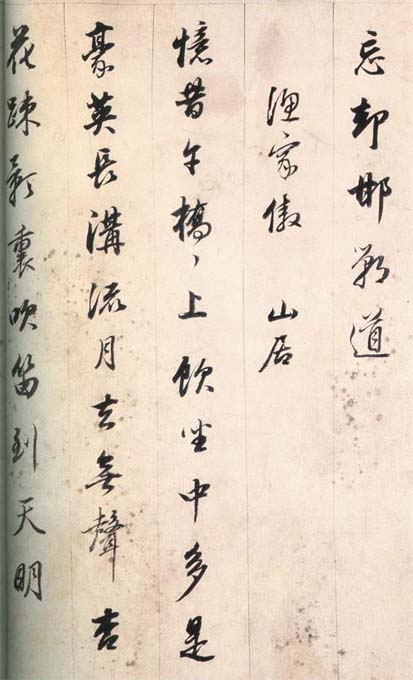 忘却邯鄲道
漁家傲 山居
憶昔午橋ヽ上飲坐中多是
豪英長溝流月去無聲杏
花疎影裏吹笛到天明